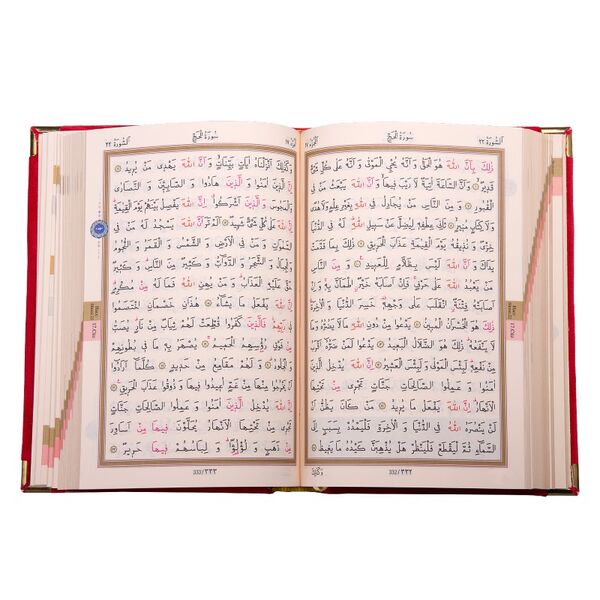 اَلسُّورَةُ ٢٢
سُورَةُ الْحَجِّ
ذٰلِكَ بِاَنَّ اللّٰهَ هُوَ الْحَقُّ وَاَنَّهُ يُحْيِ الْمَوْتٰى وَاَنَّهُ عَلٰى كُلِّ شَيْءٍ
قَدِيرٌ وَاَنَّ السَّاعَةَ اٰتِيَةٌ لَا رَيْبَ فِيهَا وَاَنَّ اللّٰهَ يَبْعَثُ مَنْ فِي
الْقُبُورِ وَمِنَ النَّاسِ مَنْ يُجَادِلُ فِي اللّٰهِ بِغَيْرِ عِلْمٍ وَلَا هُدًى
وَلَا كِتَابٍ مُنِيرٍ ثَانِيَ عِطْفِهِ لِيُضِلَّ عَنْ سَبِيلِ اللّٰهِ لَهُ فِي الدُّنْيَا
خِزْيٌ وَنُذِيقُهُ يَوْمَ الْقِيٰمَةِ عَذَابَ الْحَرِيقِ ذٰلِكَ بِمَا قَدَّمَتْ
يَدَاكَ وَاَنَّ اللّٰهَ لَيْسَ بِظَلَّامٍ لِلْعَبِيدِ وَمِنَ النَّاسِ
مَنْ يَعْبُدُ اللّٰهَ عَلٰى حَرْفٍ فَاِنْ اَصَابَهُ خَيْرٌ اِطْمَاَنَّ بِهِ وَاِنْ
اَصَابَتْهُ فِتْنَةٌ انْقَلَبَ عَلٰى وَجْهِهِ خَسِرَ الدُّنْيَا وَالْاٰخِرَةَ
ذٰلِكَ هُوَ الْخُسْرَانُ الْمُبِينُ يَدْعُوا مِنْ دُونِ اللّٰهِ مَا لَا يَضُرُّهُ وَمَا
لَا يَنْفَعُهُ ذٰلِكَ هُوَ الضَّلَالُ الْبَعِيدُ يَدْعُوا لَمَنْ ضَرُّهُ اَقْرَبُ
مِنْ نَفْعِهِ لَبِئْسَ الْمَوْلٰى وَلَبِئْسَ الْعَشِيرُ اِنَّ اللّٰهَ يُدْخِلُ الَّذِينَ
اٰمَنُوا وَعَمِلُوا الصَّالِحَاتِ جَنَّاتٍ تَجْرِي مِنْ تَحْتِهَا
الْاَنْهَارُ اِنَّ اللّٰهَ يَفْعَلُ مَا يُرِيدُ مَنْ كَانَ يَظُنُّ اَنْ
لَنْ يَنْصُرَهُ اللّٰهُ فِي الدُّنْيَا وَالْاٰخِرَةِ فَلْيَمْدُدْ بِسَبَبٍ اِلَى
السَّمَاءِ ثُمَّ لْيَقْطَعْ فَلْيَنْظُرْ هَلْ يُذْهِبَنَّ كَيْدُهُ مَا يَغِيظُ
332/٣٣٢
اَلسُّورَةُ ٢٢
سُورَةُ الْحَجِّ
وَكَذٰلِكَ اَنْزَلْنَاهُ اٰيَاتٍ بَيِّنَاتٍ وَاَنَّ اللّٰهَ يَهْدِي مَنْ يُرِيدُ
اِنَّ الَّذِينَ اٰمَنُوا وَالَّذِينَ هَادُوا وَالصَّابِئِينَ وَالنَّصَارٰى
وَالْمَجُوسَ وَالَّذِينَ اَشْرَكُوا اِنَّ اللّٰهَ يَفْصِلُ بَيْنَهُمْ يَوْمَ الْقِيٰمَةِ
اِنَّ اللّٰهَ عَلٰى كُلِّ شَيْءٍ شَهِيدٌ اَلَمْ تَرَ اَنَّ اللّٰهَ يَسْجُدُ لَهُ مَنْ فِي
السَّمٰوَاتِ وَمَنْ فِي الْاَرْضِ وَالشَّمْسُ وَالْقَمَرُ وَالنُّجُومُ
وَالْجِبَالُ وَالشَّجَرُ وَالدَّوَابُّ وَكَثِيرٌ مِنَ النَّاسِ وَكَثِيرٌ
حَقَّ عَلَيْهِ الْعَذَابُ وَمَنْ يُهِنِ اللّٰهُ فَمَا لَهُ مِنْ مُكْرِمٍ
اِنَّ اللّٰهَ يَفْعَلُ مَا يَشَاءُ هٰذَانِ خَصْمَانِ اخْتَصَمُوا
فِي رَبِّهِمْ فَالَّذِينَ كَفَرُوا قُطِّعَتْ لَهُمْ ثِيَابٌ مِنْ نَارٍ يُصَبُّ
مِنْ فَوْقِ رُؤُسِهِمُ الْحَمِيمُ يُصْهَرُ بِهِ مَا فِي بُطُونِهِمْ
وَالْجُلُودُ وَلَهُمْ مَقَامِعُ مِنْ حَدِيدٍ كُلَّمَا اَرَادُوا
اَنْ يَخْرُجُوا مِنْهَا مِنْ غَمٍّ اُعِيدُوا فِيهَا وَذُوقُوا عَذَابَ الْحَرِيقِ
اِنَّ اللّٰهَ يُدْخِلُ الَّذِينَ اٰمَنُوا وَعَمِلُوا الصَّالِحَاتِ جَنَّاتٍ
تَجْرِي مِنْ تَحْتِهَا الْاَنْهَارُ يُحَلَّوْنَ فِيهَا مِنْ اَسَاوِرَ
مِنْ ذَهَبٍ وَلُؤْلُؤًا وَلِبَاسُهُمْ فِيهَا حَرِيرٌ
333/٣٣٣